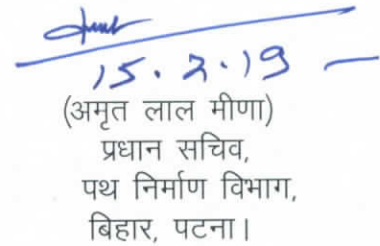 15.2.19
(अमृत लाल मीणा)
प्रधान सचिव,
पथ निर्माण विभाग,
बिहार, पटना।